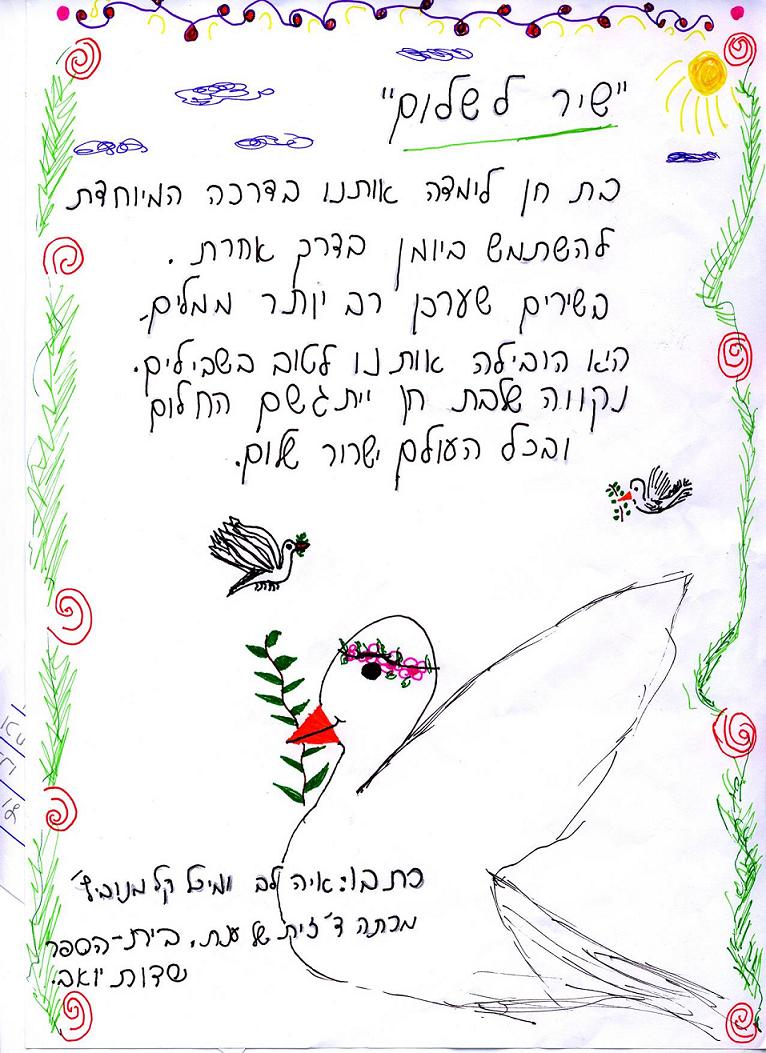 "שיר לשלום"
בת חן לימדה אותנו בדרכה המיוחדת
להשתמש ביומן בדרך אחרת.
בשירים שערכן רב יותר ממלים,
היא הובילה אותנו לטוב בשבילים.
נקווה שלבת חן יתגשם החלום
ובכל העולם ישרור שלום.
כתבו: איה לב ומיכל קלמנוביץ'
מכתה ד' זית של ענת, בית-הספר
שדות יואב.